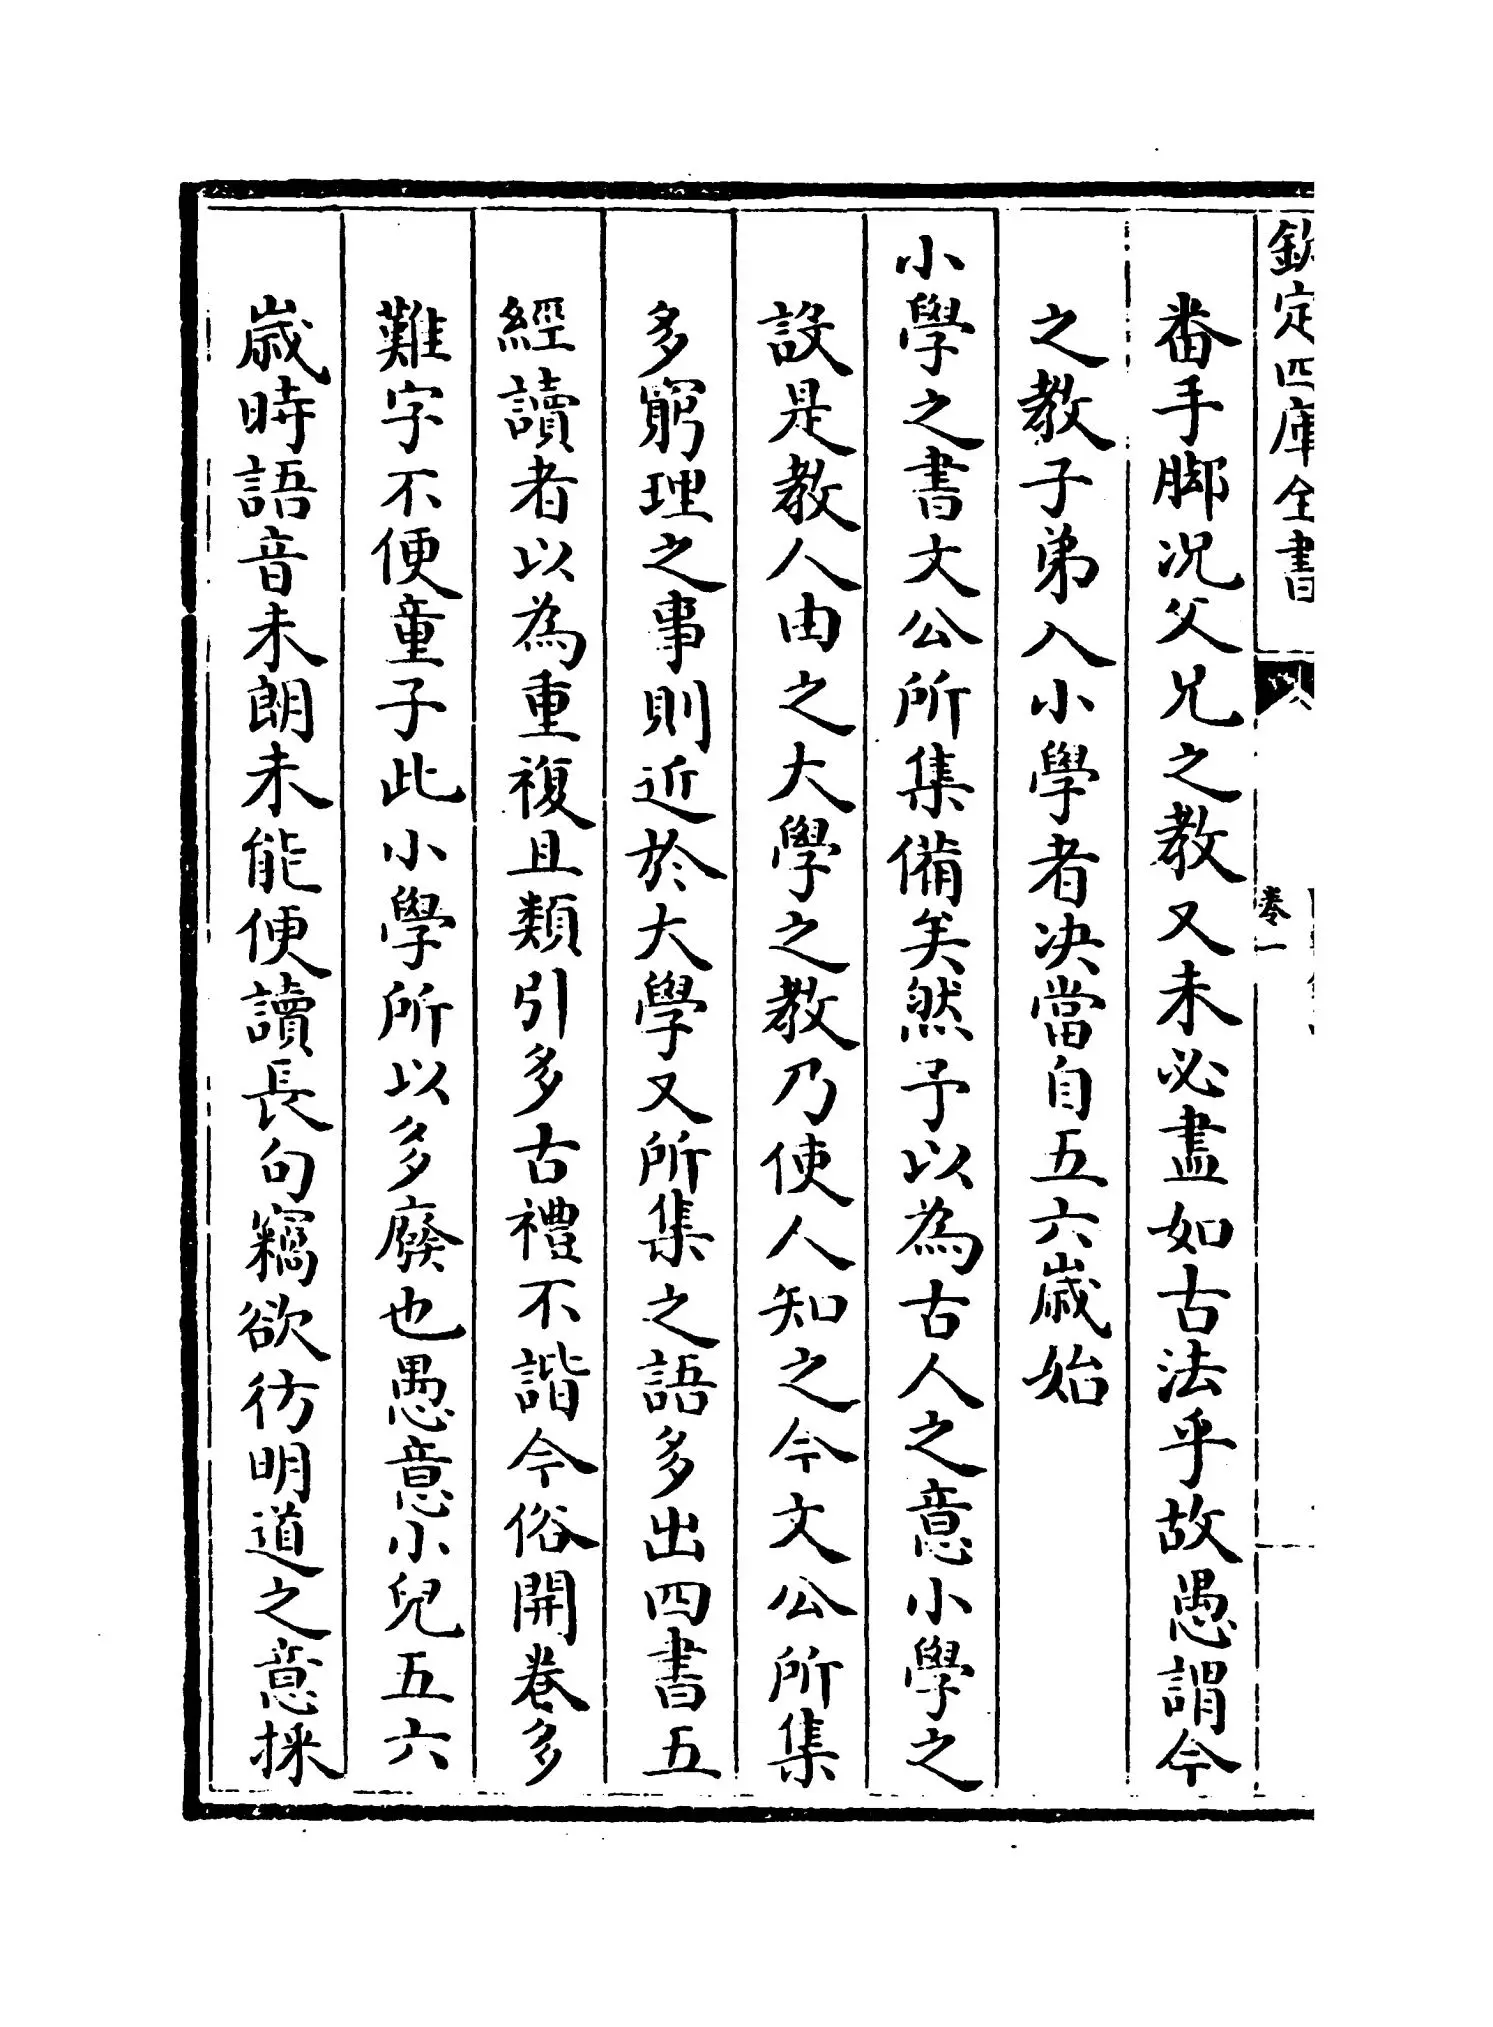 欽定四庫全書
卷一
番手脚况父兄之教又未必盡如古法乎故愚謂今
之教子弟入小學者决當自五六歲始
小學之書文公所集備矣然予以為古人之意小學之
設是教人由之大學之教乃使人知之今文公所集
多窮理之事則近於大學又所集之語多出四書五
經讀者以為重複且類引多古禮不諧今俗開卷多
難字不便童子此小學所以多廢也愚意小兒五六
歲時語音未朗未能便讀長句竊欲彷明道之意採